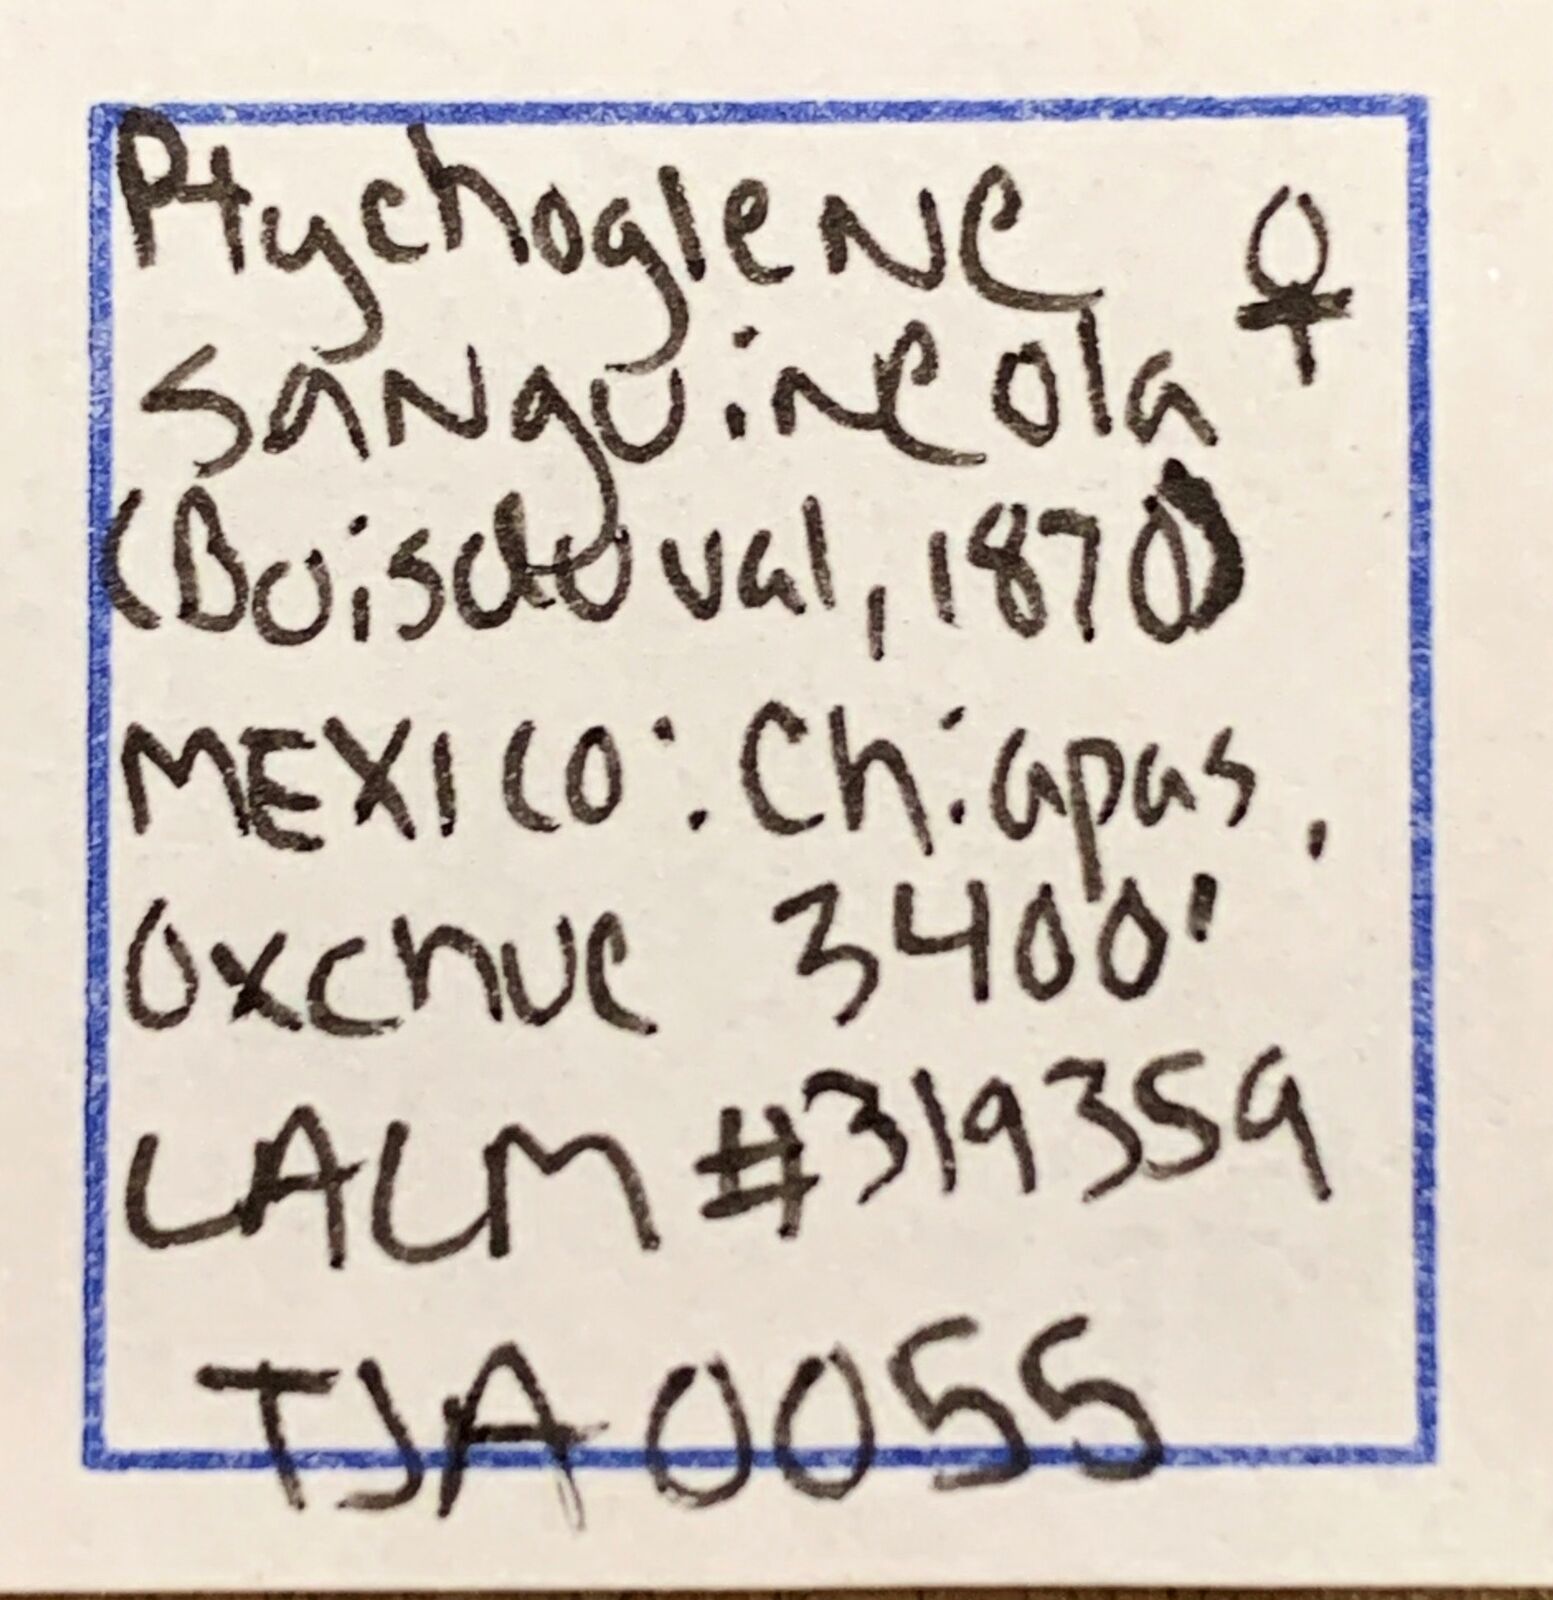 Ptychoglene ♀
sanguineola
(Boisduval, 1870)
MEXICO: Chiapas,
Oxchuc 3400'
LALM #319359
TJA0055